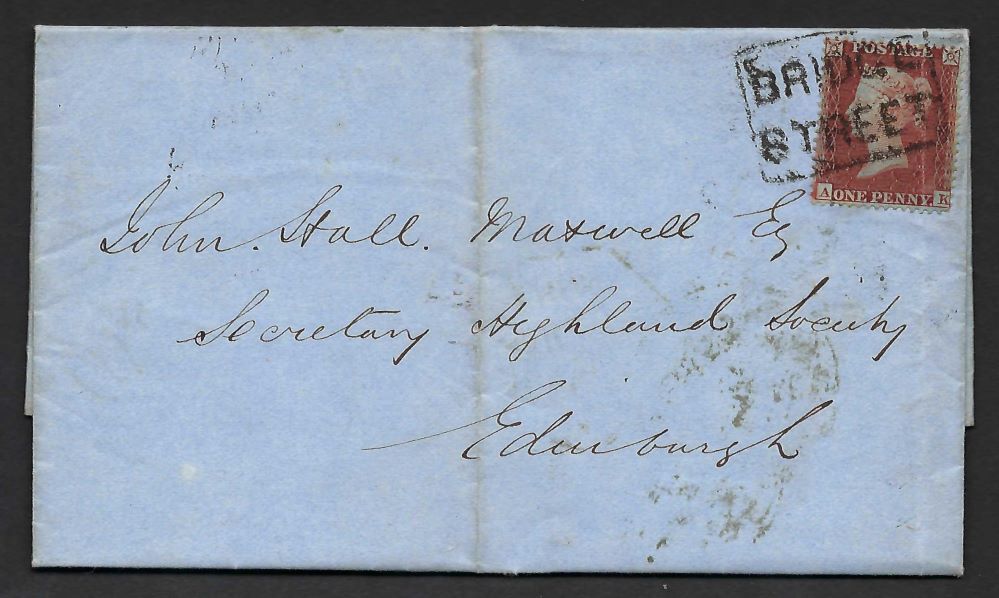 BRIDGE
STREET
POSTAGE
A ONE PENNY K
John. Hall. Maxwell Esq
Secretary Highland Society
Edinburgh